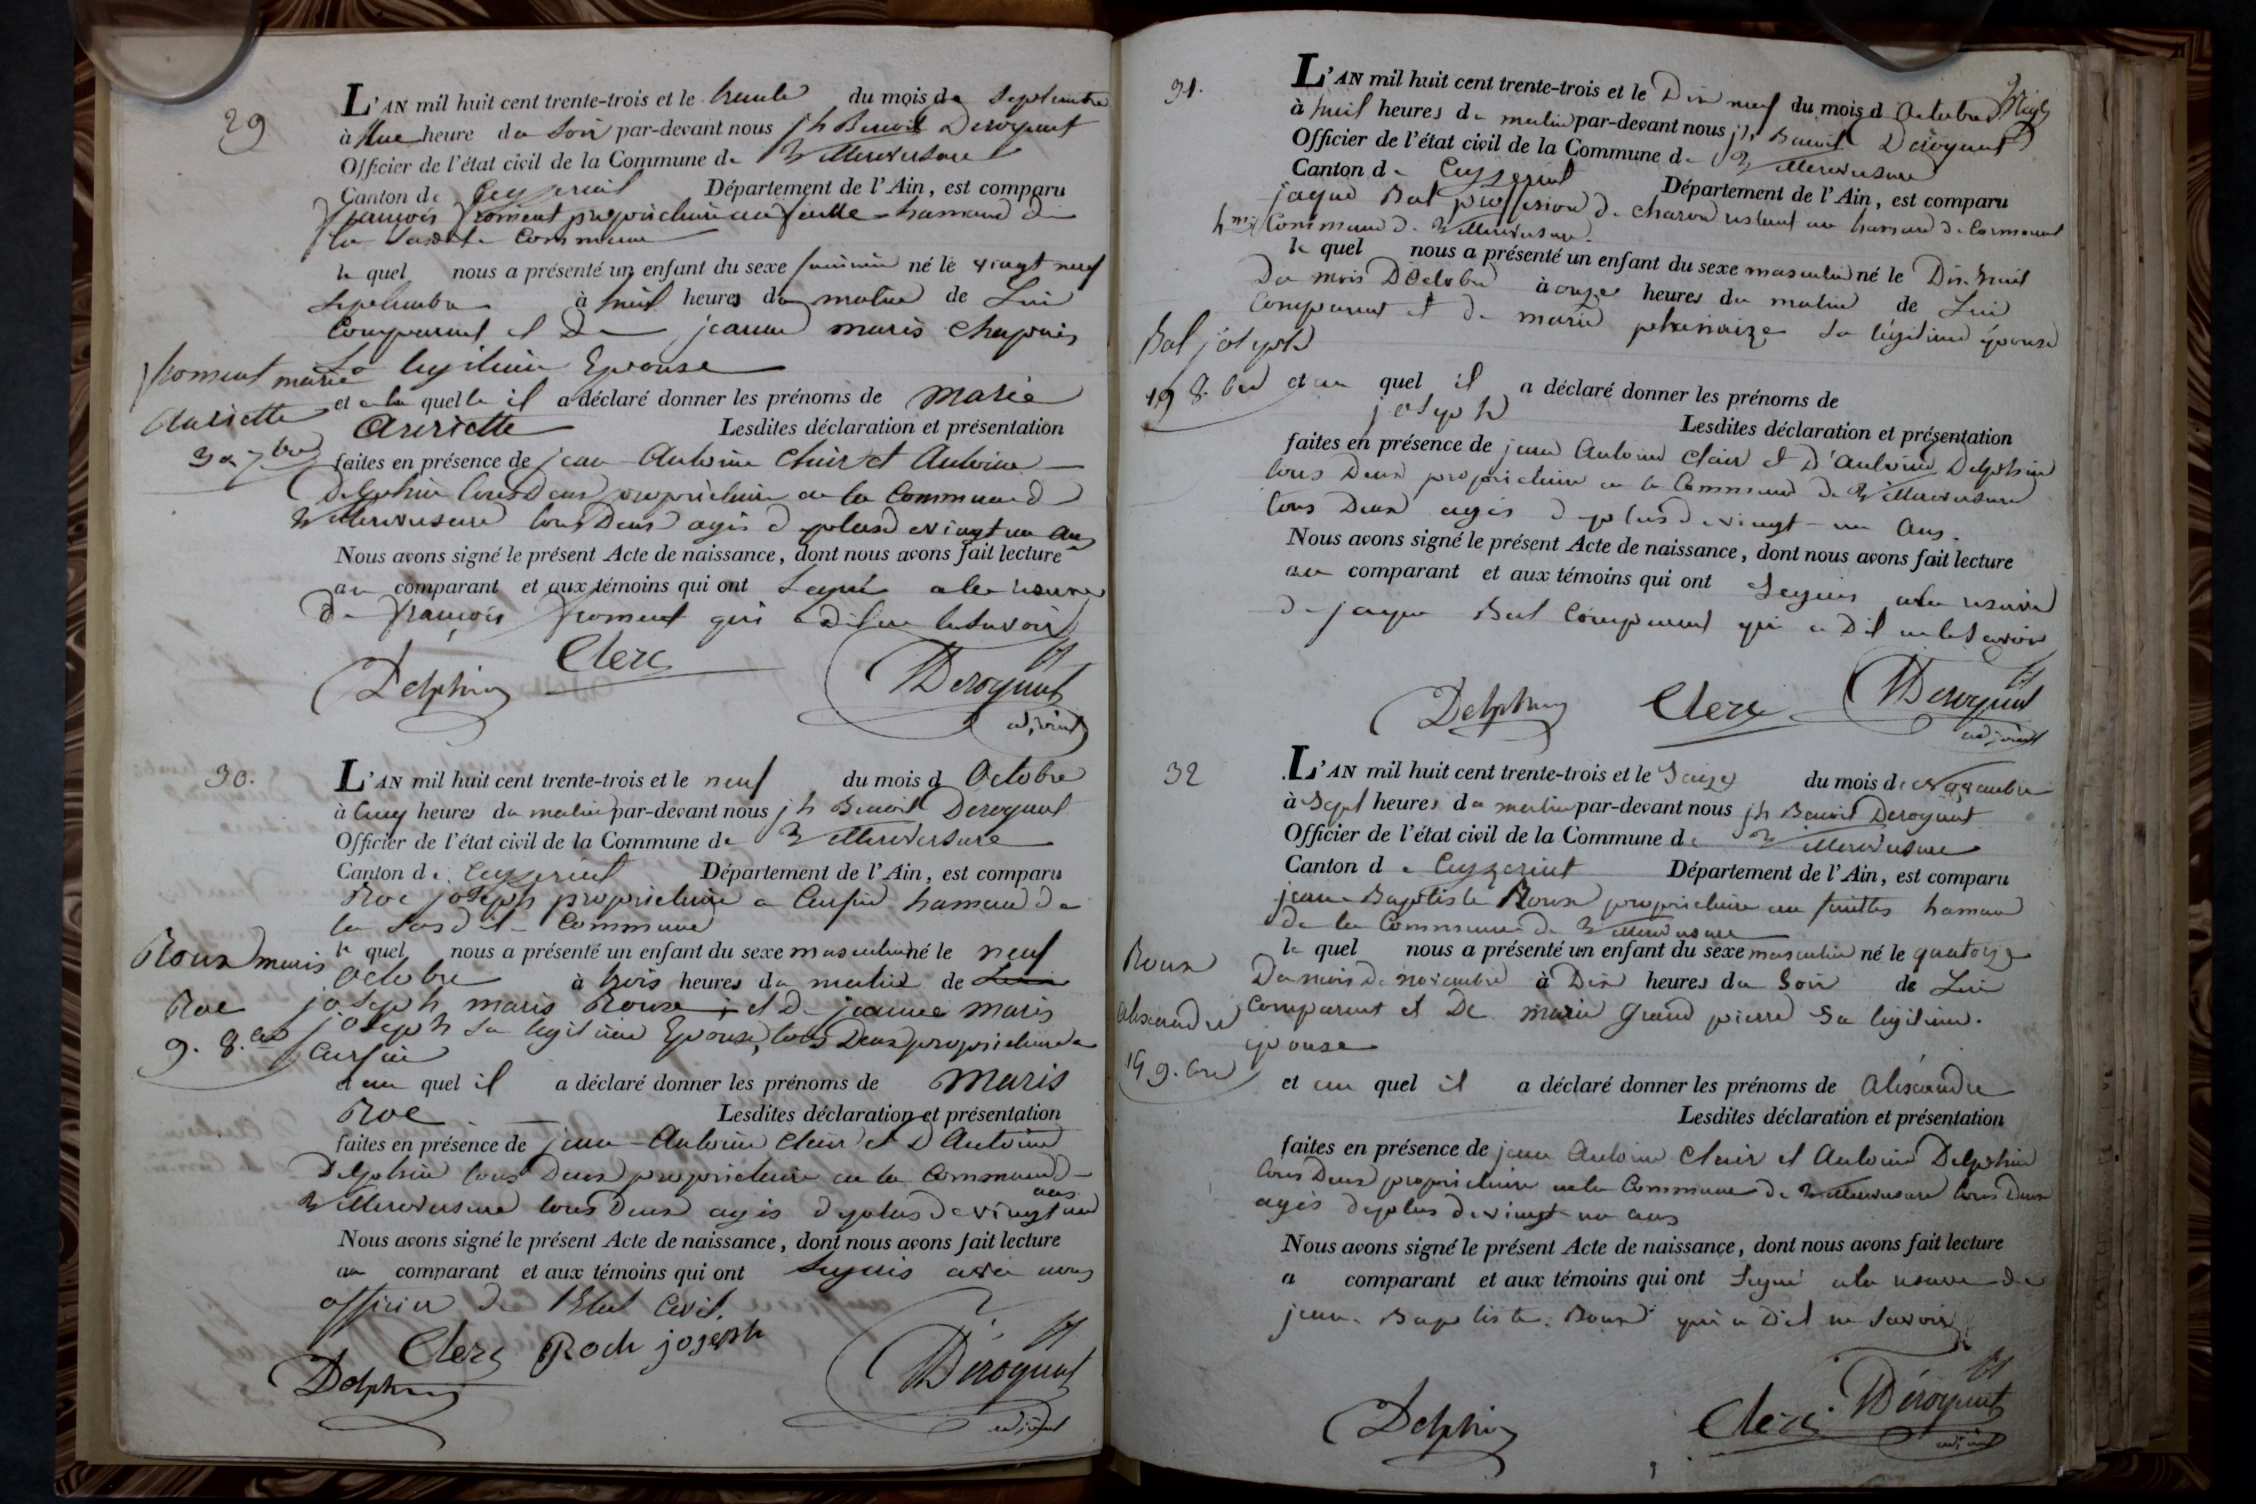 29
L'AN mil huit cent trente-trois et le trente du mois de Septembre
à heure du Soir par-devant nous jh Benoit Deroyaut
Officier de l'état civil de la Commune de Villereversure
Canton de Ceyzeriat Département de l'Ain, est comparu
françois froment propriettaire hameau de
la Commune
le quel nous a présenté un enfant du sexe né le vingt neuf
Septembre à huit heures du matin de Lui
Comparant et De jeanne marie Chapuis
Sa legitime Epouse
froment marie
Auriette
30 7bre
et a la quelle il a déclaré donner les prénoms de Marie
Auriette Lesdites déclaration et présentation
faites en présence de jean Antoine Clair et Antoine
Delphin tous Deux propriettaire en la Commune d
Villereversure tous Deux agés d plus de vingt un ans
Nous avons signé le présent Acte de naissance, dont nous avons fait lecture
au comparant et aux témoins qui ont Signé a la reserve
De françois froment qui a dit ne le Savoir
Delphin Clerc Deroyaut
adjoint
30.
L'AN mil huit cent trente-trois et le neuf du mois d Octobre
à Cinq heures du matin par-devant nous jh Benoit Deroyaut
Officier de l'état civil de la Commune de Villereversure
Canton de Ceyzeriat Département de l'Ain, est comparu
Roc joseph propriettaire a hameau de
la Susdite Commune
le quel nous a présenté un enfant du sexe masculin né le neuf
Octobre à trois heures du matin de Lui
joseph marie Roux et De jeanne marie
joseph Sa legitime Epouse, tous Deux propriettaire a
Roux marie
Roc
9. 8.bre
et au quel il a déclaré donner les prénoms de Marie
Roc Lesdites déclaration et présentation
faites en présence de jean Antoine Clair et D Antoine
Delphin tous Deux propriettaire en la Commune d
Villereversure tous Deux agés d plus de vingt un ans
Nous avons signé le présent Acte de naissance, dont nous avons fait lecture
au comparant et aux témoins qui ont Signés avec nous
officier de l'Etat Civil.
Clerc Roch joseph
Delphin Deroyaut
adjoint
31.
L'AN mil huit cent trente-trois et le Dix neuf du mois d Octobre
à huit heures du matin par-devant nous jh Benoit Deroyaut
Officier de l'état civil de la Commune de Villereversure
Canton de Ceyzeriat Département de l'Ain, est comparu
jaque Bat proffesion de charon restent au hameau de
Commune de Villereversure.
le quel nous a présenté un enfant du sexe masculin né le Dix huit
Du mois D Octobre à onze heures du matin de Lui
Comparant et de marie sa légitime épouse
Bat joseph
19 8.bre
et au quel il a déclaré donner les prénoms de
joseph Lesdites déclaration et présentation
faites en présence de jean Antoine Clair et D'antoine Delphin
tous Deux propriettaire en la Commune de Villereversure
tous Deux agés d plus de vingt-un ans.
Nous avons signé le présent Acte de naissance, dont nous avons fait lecture
au comparant et aux témoins qui ont Signés a la reserve
de jaque Bat Comparant qui a Dit ne le Savoir
Delphin Clerc Deroyaut
adjoint
32
L'AN mil huit cent trente-trois et le Saize du mois de Novembre
à Sept heures du matin par-devant nous jh Benoit Deroyaut
Officier de l'état civil de la Commune de Villereversure
Canton de Ceyzeriat Département de l'Ain, est comparu
jean Baptiste Roux propriettaire au hameau
de la Commune de Villereversure
le quel nous a présenté un enfant du sexe masculin né le quatorze
Du mois de novembre à Dix heures du Soir de Lui
Comparant et De marie Grand pierre Sa legitime.
epouse
Roux
Alexandre
9.bre
et au quel il a déclaré donner les prénoms de Alexandre
Lesdites déclaration et présentation
faites en présence de jean Antoine Clair et Antoine Delphin
tous Deux propriettaire en la Commune de Villereversure tous Deux
agés d plus de vingt-un ans
Nous avons signé le présent Acte de naissance, dont nous avons fait lecture
a comparant et aux témoins qui ont Signé a la reserve de
jean Baptiste Roux qui a Dit ne Savoir
Delphin Clerc Deroyaut
adjoint